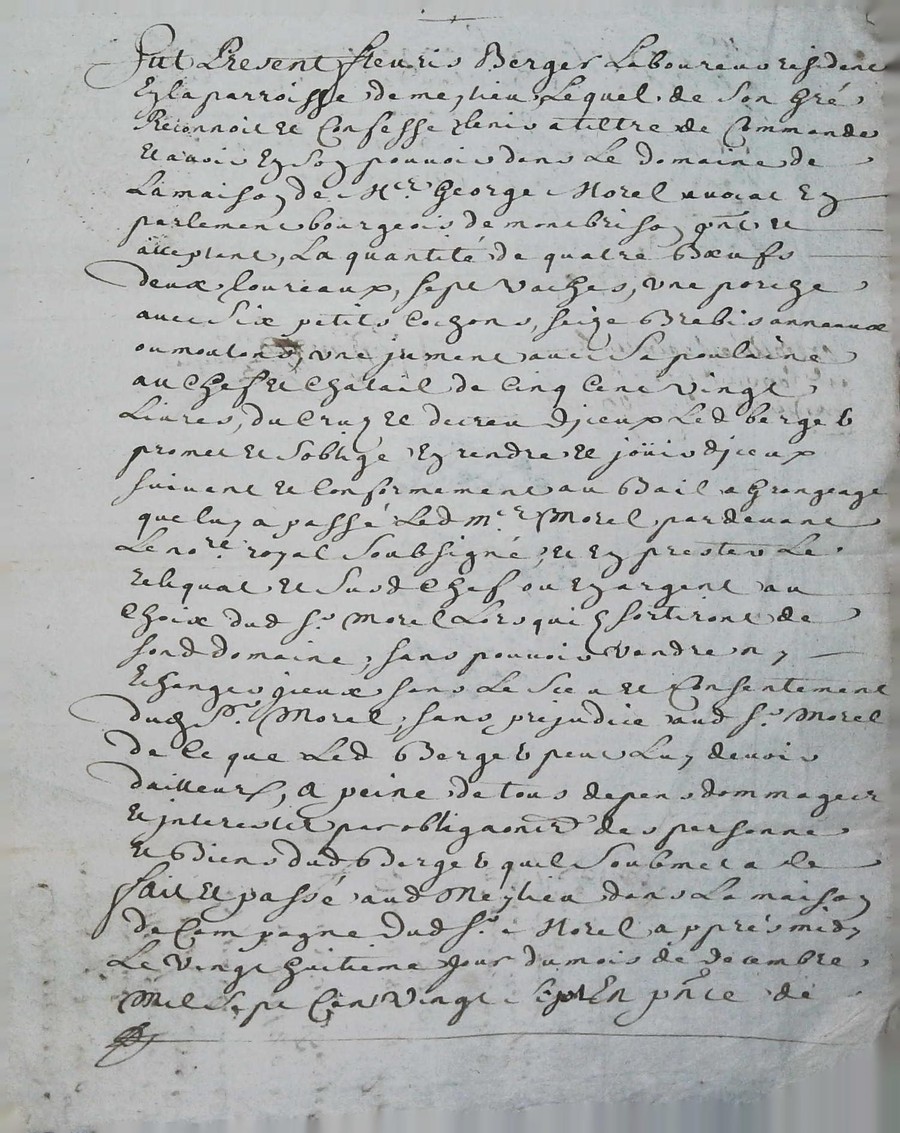 Fut Present fleuris Berger Laboureur resident
En la parroisse de meylieu Lequel de Son Gré
Reconnoit et Confesse tenir a tiltre de Commande
et avoir En Son pouvoir dans Le domaine de
La maison de Mcr George Morel avocat En
parlement bourgeois de montbrison pnt et
acceptant, La quantité de quatre Bœufs
deux toureaux, sept vaches, une porche
avec Six petits Cochons, seize Brebis anneaux
ou moutons, une jument avec Sa poulaine
au Chef et Chatail de Cinq Cent vingt
Livres, du Cru et decreu djceux Led berger
promet et Soblige En rendre et joüir djceux
suivant et Conformement au Bail a Grangeage
que luy a passé Led mer Morel pardevant
Le nore royal Soubsigné, et En prester Le
reliquat et Susd Chef ou En argent au
Choix dud Sr Morel Lors quil sortiront de
sond domaine, sans pouvoir vendre ny
Echanger jceux sans Le Sceu et Consentement
dud Sr Morel, sans prejudice aud Sr Morel
de Ce que Led Berger peut Luy devoir
dailleurs, a peine de tous depens dommages
et interestz par obligaon des personne
et Biens dud Berger quil Soubmet a &c
fait et passé aud Meylieu dans La maison
de Campagne dud Sr Morel appres midy
Le vingt huitieme Jour du mois de decembre
Mil Sept Cens vingt En pnce de